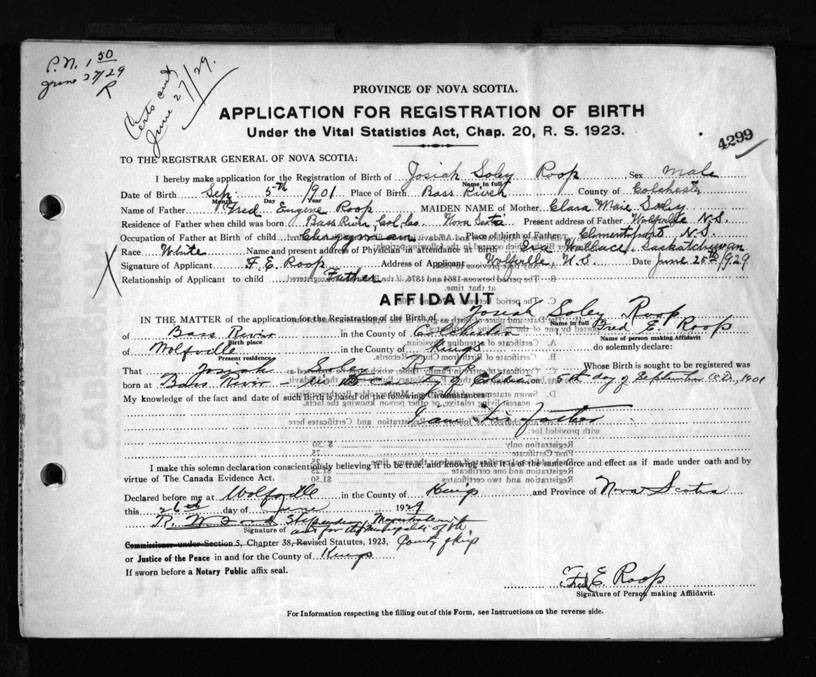 P.N. 1 50
June 27/29
R
Certs and
June 27/29.
PROVINCE OF NOVA SCOTIA.
APPLICATION FOR REGISTRATION OF BIRTH
Under the Vital Statistics Act, Chap. 20, R. S. 1923.
4299
TO THE REGISTRAR GENERAL OF NOVA SCOTIA:
I hereby make application for the Registration of Birth of Josiah Soley Roop Sex Male
Name in full
Date of Birth Sep 5th 1901 Place of Birth Bass River County of Colchester
Month Day Year
Name of Father Fred Eugene Roop MAIDEN NAME of Mother Clara Soley
Residence of Father when child was born Bass River, Col. Co. Nova Scotia Present address of Father Wolfville N.S.
Occupation of Father at Birth of child Clergyman Place of Birth of Father Clementsport, N.S.
Race White Name and present address of Physician in attendance at birth Wallace, Saskatchewan
Signature of Applicant F. E. Roop Address of Applicant Wolfville N.S. Date June 25th 1929
Relationship of Applicant to child Father
AFFIDAVIT
IN THE MATTER of the application for the Registration of the Birth of Josiah Soley Roop
Name in full
of Bass River in the County of Colchester Fred E. Roop
Birth place Name of person making Affidavit
of Wolfville in the County of Kings do solemnly declare:
Present residence
That Josiah Soley Roop Whose Birth is sought to be registered was
born at Bass River in the County of Colchester 5th day of September A.D., 1901
My knowledge of the fact and date of such birth is based on the following Circumstances
I am his father
I make this solemn declaration conscientiously believing it to be true, and knowing that it is of the same force and effect as if made under oath and by
virtue of The Canada Evidence Act.
Declared before me at Wolfville in the County of Kings and Province of Nova Scotia
this 26th day of June 1929
Stipendiary Magistrate
Signature of
in and for the Municipality of the
Commissioner under Section 5, Chapter 38, Revised Statutes, 1923, County of Kings
or Justice of the Peace in and for the County of Kings
If sworn before a Notary Public affix seal.
Fred E. Roop
Signature of Person making Affidavit.
For Information respecting the filling out of this Form, see Instructions on the reverse side.